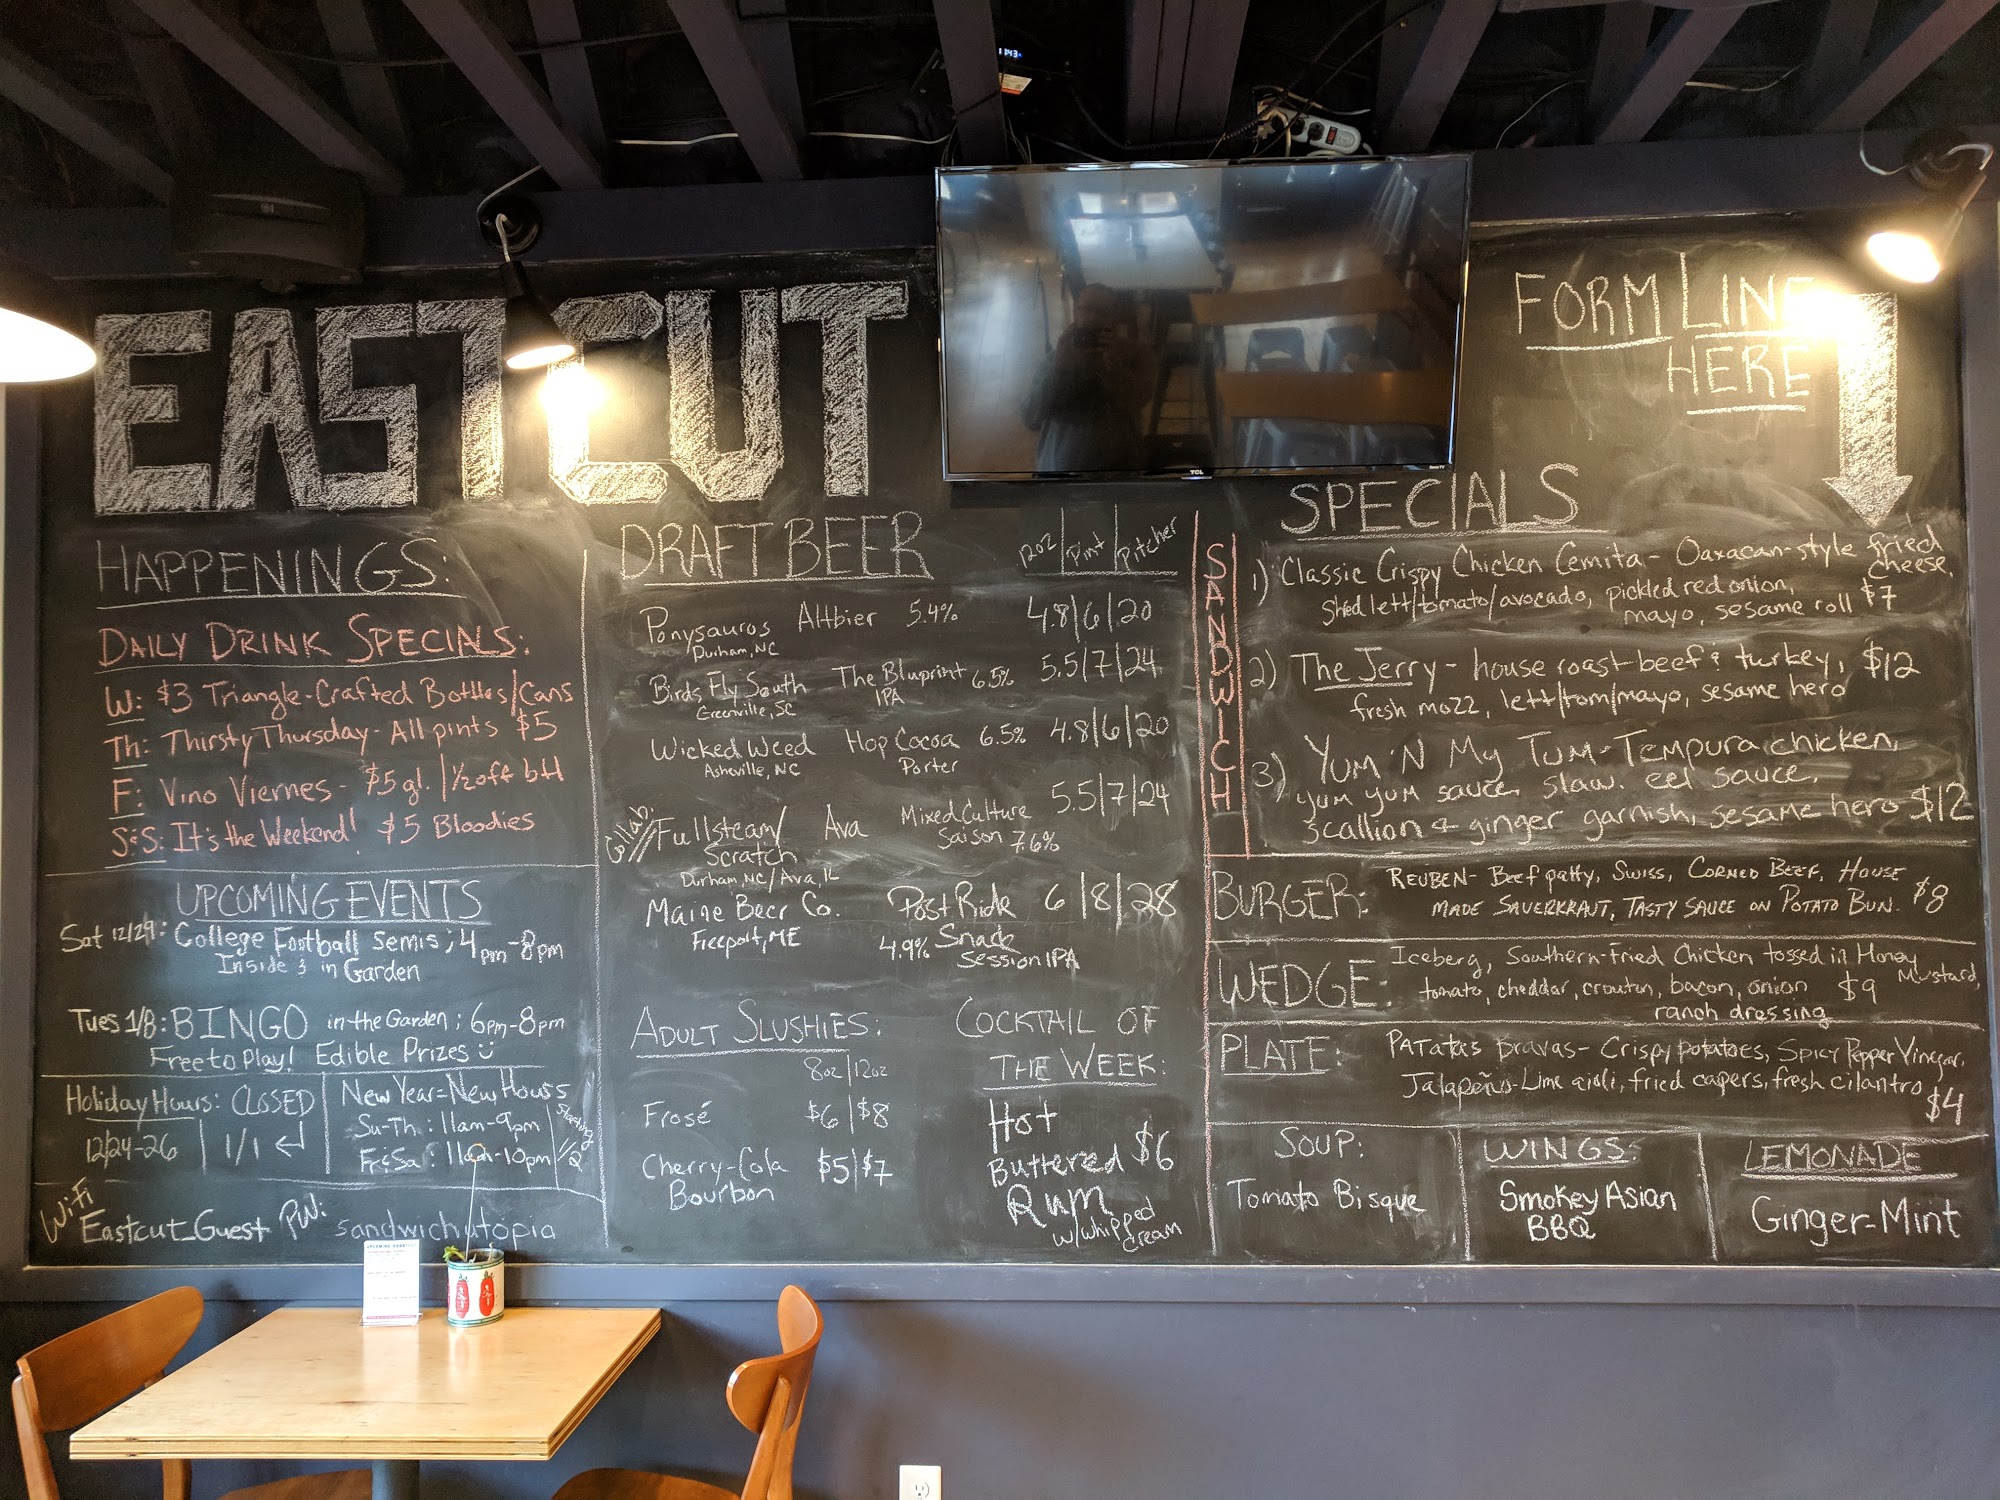 EASTCUT
FORM LINE
HERE
TCL
HAPPENINGS:
DAILY DRINK SPECIALS:
W: $3 Triangle-Crafted Bottles/Cans
Th: Thirsty Thursday- All pints $5
F: Vino Viernes- $5 gl. | 1/2 off btl
S&S: It's the Weekend! $5 Bloodies
UPCOMING EVENTS
Sat 12/29: College Football Semis; 4pm-8pm
Inside & in Garden
Tues 1/8: BINGO in-the Garden; 6pm-8pm
Free to Play! Edible Prizes
Holiday Hours: CLOSED
12/24-26 | 1/1
New Year=New Hours
Su-Th: 11am-9pm
Fri&Sa: 11am-10pm
Starting
WiFi
Eastcut_Guest PW: sandwichutopia
DRAFT BEER
12oz | Pint | Pitcher
Ponysauros Altbier 5.4% 4.8|6|20
Durham, NC
Birds Fly South The Blueprint 6.5% 5.5|7|24
Greenville, SC IPA
Wicked Weed Hop Cocoa 6.5% 4.8|6|20
Asheville, NC Porter
Collab: Fullsteam/ Ava Mixed Culture 5.5|7|24
Scratch Saison 7.6%
Durham, NC/Ava, IL
Maine Beer Co. Post Ride 6|8|28
Freeport, ME 4.9% Snack
Session IPA
ADULT SLUSHIES:
8oz|12oz
Frosé $6|$8
Cherry-Cola $5|$7
Bourbon
COCKTAIL OF
THE WEEK:
Hot
Buttered $6
Rum
w/whipped
cream
SPECIALS
SANDWICH
1) Classic Crispy Chicken Cemita- Oaxacan-style fried
cheese,
Shred lett/tomato/avocado, pickled red onion,
mayo, sesame roll $7
2) The Jerry- house roast beef & turkey, $12
fresh mozz, lett/tom/mayo, sesame hero
3) YUM 'N MY TUM- TEMPURA chicken,
yum yum sauce, slaw, eel sauce,
scallion & ginger garnish, sesame hero $12
BURGER: REUBEN- Beef patty, Swiss, Corned Beef, House
made Sauerkraut, Tasty sauce on Potato Bun. $8
WEDGE: Iceberg, Southern-Fried Chicken tossed in Honey
Mustard,
tomato, cheddar, crouton, bacon, onion $9
ranch dressing
PLATE: PATatas Bravas- Crispy potatoes, Spicy Pepper Vinegar,
Jalapeño-Lime aioli, fried capers, fresh cilantro
$4
SOUP:
Tomato Bisque
WINGS:
Smokey Asian
BBQ
LEMONADE
Ginger-Mint